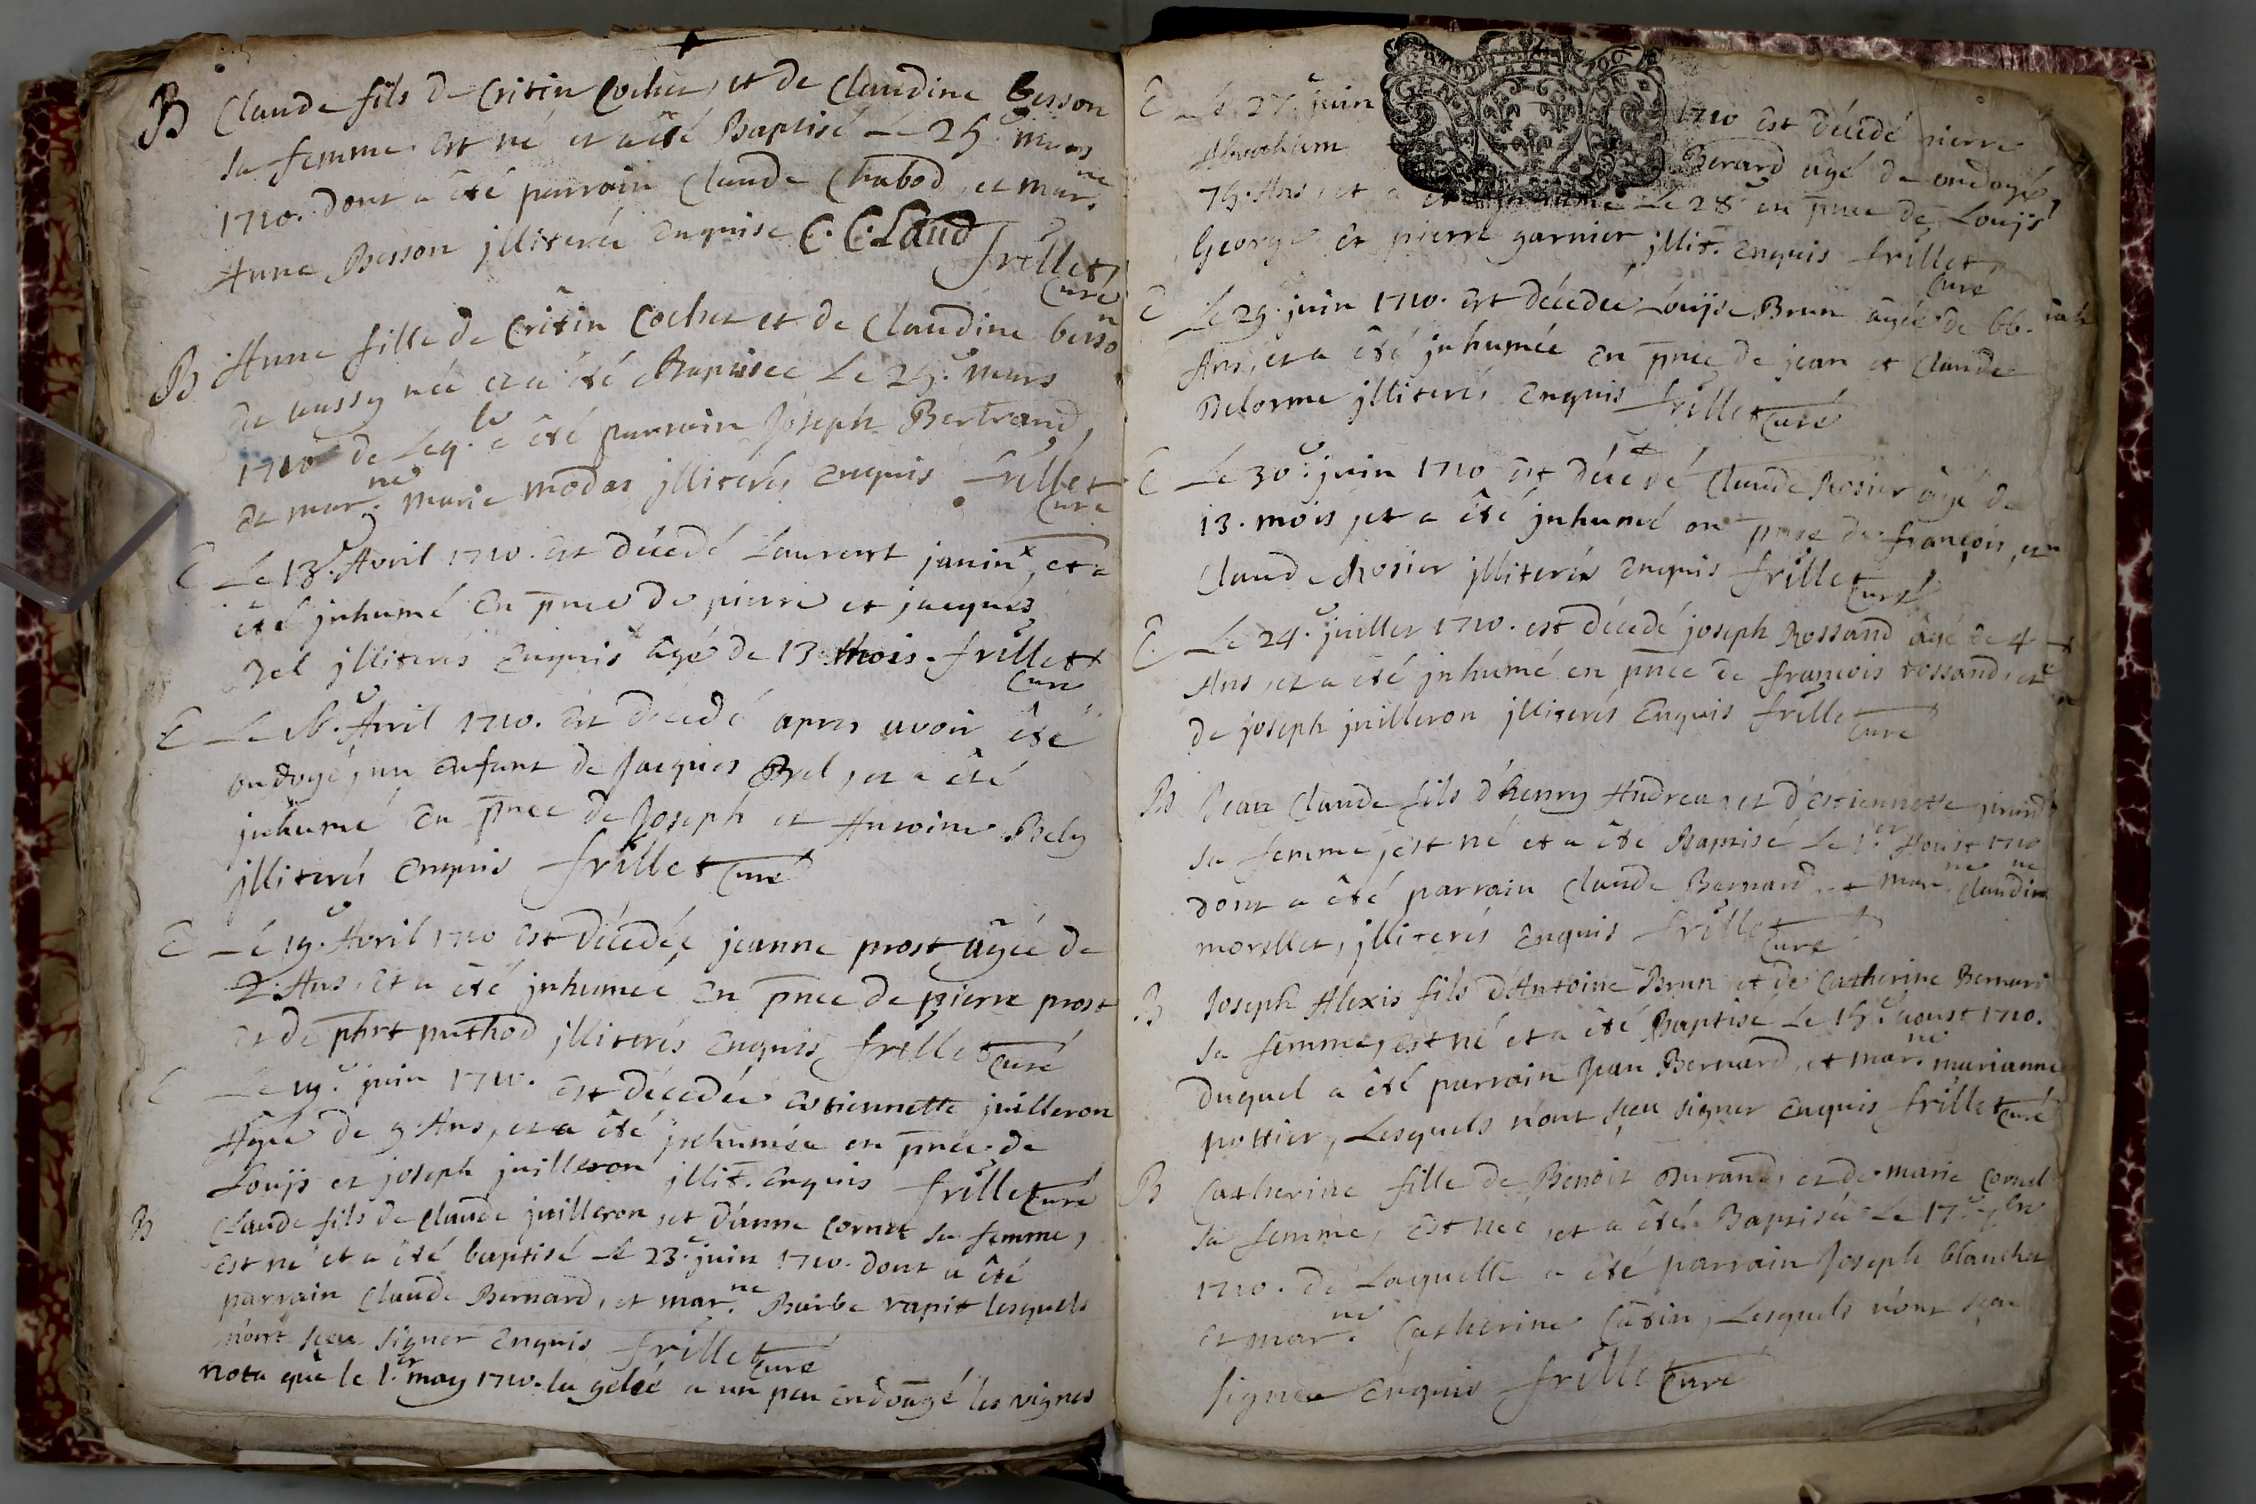 B Claude fils de Critin Cochet, et de Claudine besson
sa femme est né et a été Baptisé Le 25.e mars
1710. dont a été parrain Claude Chabod, et mar.ne
Anne Besson jlliterée Enquise C. C. Laud
frillet
Curé
B Anne fille de Critin Cochet et de Claudine besso.n
de aussy née et a été Baptisée Le 25.e mars
1710 de Leq.le a été parrain Joseph Bertrand,
et mar.ne marie modas jlliterés Enquis frillet
Curé
E Le 13.e Avril 1710. est décedé Laurent janin x, et a
été jnhumé En pnce de pierre et jacques
jlliterés Enquis x agé de 13 mois. frillet
Curé
E Le Avril 1710. est decedé apres avoir été
ondoyé, un Enfant de Jacques Brel, et a été
jnhumé En pnce de Joseph et Antoine Bely
jlliterés Enquis frillet Curé
E Le 19.e Avril 1710 est décedée jeanne prost agée de
2. Ans, et a été jnhumée En pnce de pierre prost
et de phrt puthod jlliterés Enquis frillet Curé
E Le 19.e juin 1710. est décedée Estiennette juilleron
Agée de 9. Ans, et a été jnhumée en pnce de
Louys et joseph juilleron jllit. Enquis frillet Curé
B Claude fils de Claude juilleron, et d'anne Cornet sa femme,
est né et a été baptisé Le 23.e juin 1710. dont a été
parrain Claude Bernard, et mar.ne Barbe rapit lesquels
n'ont sçeu signer Enquis frillet
Curé
nota que le 1.er may 1710. la gelée a un peu endomgé les vignes
E Le 27.e juin 1710 est décedé pierre
Abraham Berard agé de
75. Ans, et a été jnhumé Le 28.e en pnce de Louys
George et pierre garnier jllit. Enquis frillet
Curé
E Le 29. juin 1710. est décedée Louyse Brun agée de 66.
Ans, et a été jnhumée En pnce de jean et Claude
Delorme jlliterés Enquis frillet Curé
E Le 30.e juin 1710 est décedé Claude Rosier agé de
13. mois, et a été jnhumé en pnce de françois, et
Claude Rosier jlliterés Enquis frillet Curé
E Le 24.e juillet 1710. est décedé joseph Rossand agé de 4
Ans, et a été jnhumé en pnce de françois rossand, et
de joseph juilleron jlliterés Enquis frillet
Curé
B Jean Claude fils d'henry Andrea, et d'Estiennette
sa femme, est né et a été Baptisé Le 1.er Aoust 1710
dont a été parrain Claude Bernard, et mar.ne Claudine
morellet, jlliterés Enquis frillet
Curé
B Joseph Alexis fils d'Antoine Brun et de Catherine Bernard
sa femme, est né et a été Baptisé Le 15.e aoust 1710.
Duquel a été parrain Jean Bernard, et mar.ne marianne
pottier, Lesquels n'ont sçeu signer Enquis frillet Curé
B Catherine fille de Benoit Durand, et de marie Cornet
sa femme, est née, et a été Baptisée Le 17.e 7bre
1710. de Laquelle a été parrain Joseph blanchet
et mar.ne Catherine Catin, Lesquels n'ont sçeu
signer Enquis frillet Curé